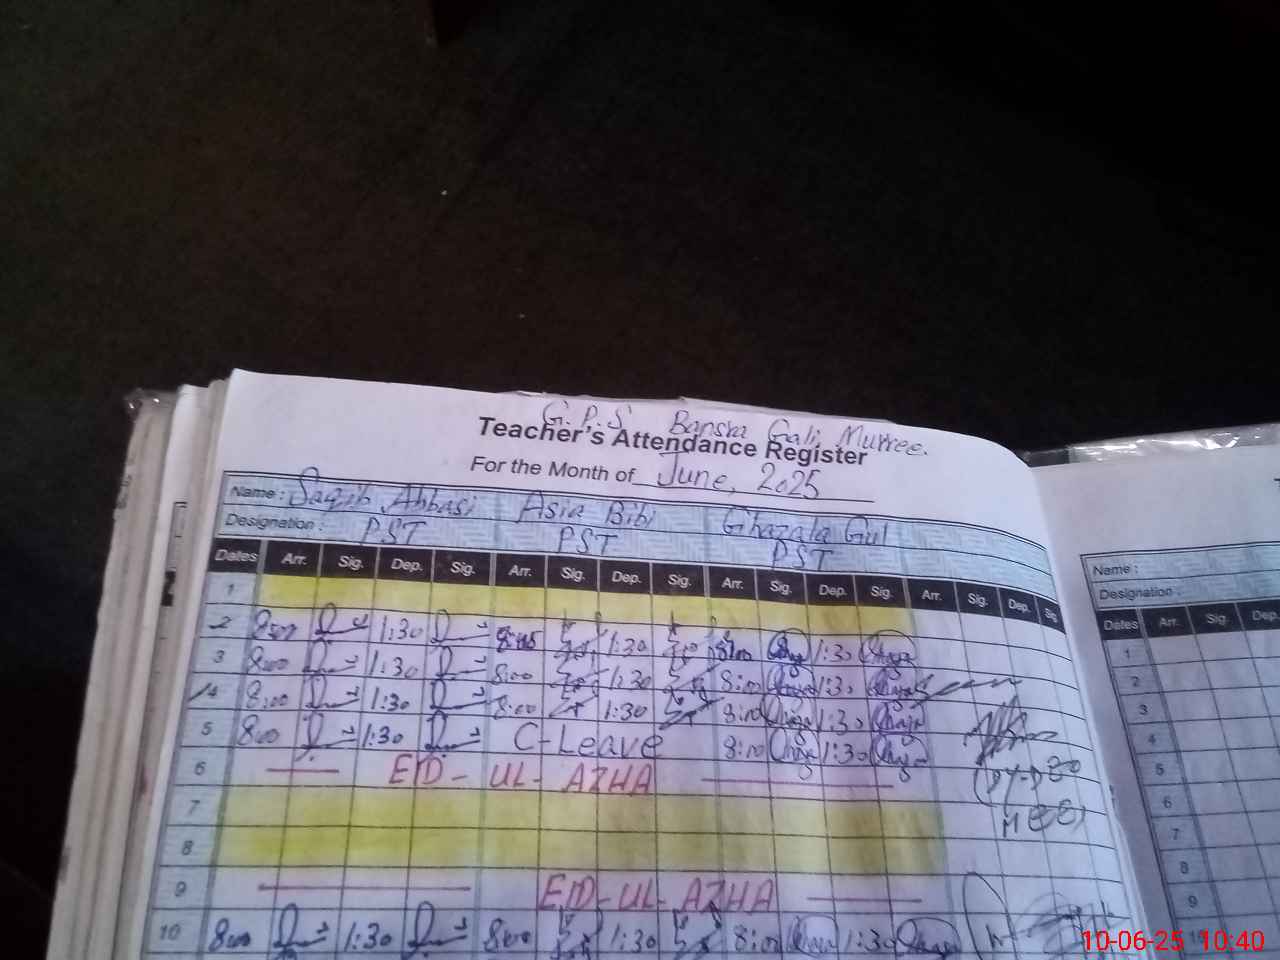 G.P.S Bansra Gali, Murree.
Teacher's Attendance Register
For the Month of June, 2025
Name: Saqib Abbasi Asia Bibi Ghazala Gul
Designation: PST PST PST
Dates Arr. Sig. Dep. Sig. Arr. Sig. Dep. Sig. Arr. Sig. Dep. Sig. Arr. Sig. Dep. Sig.
1
2 8:00 1:30 1:30 8:00 1:30
3 8:00 1:30 8:00 1:30 8:00 1:30
4 8:00 1:30 8:00 1:30 8:00 1:30
5 8:00 1:30 C-Leave 8:00 1:30
6 EID-UL-AZHA
7
8
9 EID-UL-AZHA
10 8:00 1:30 8:00 1:30 8:00 1:30
Name:
Designation:
Dates Arr. Sig. Dep.
1
2
3
4
5
6
7
8
9
10
10-06-25 10:40